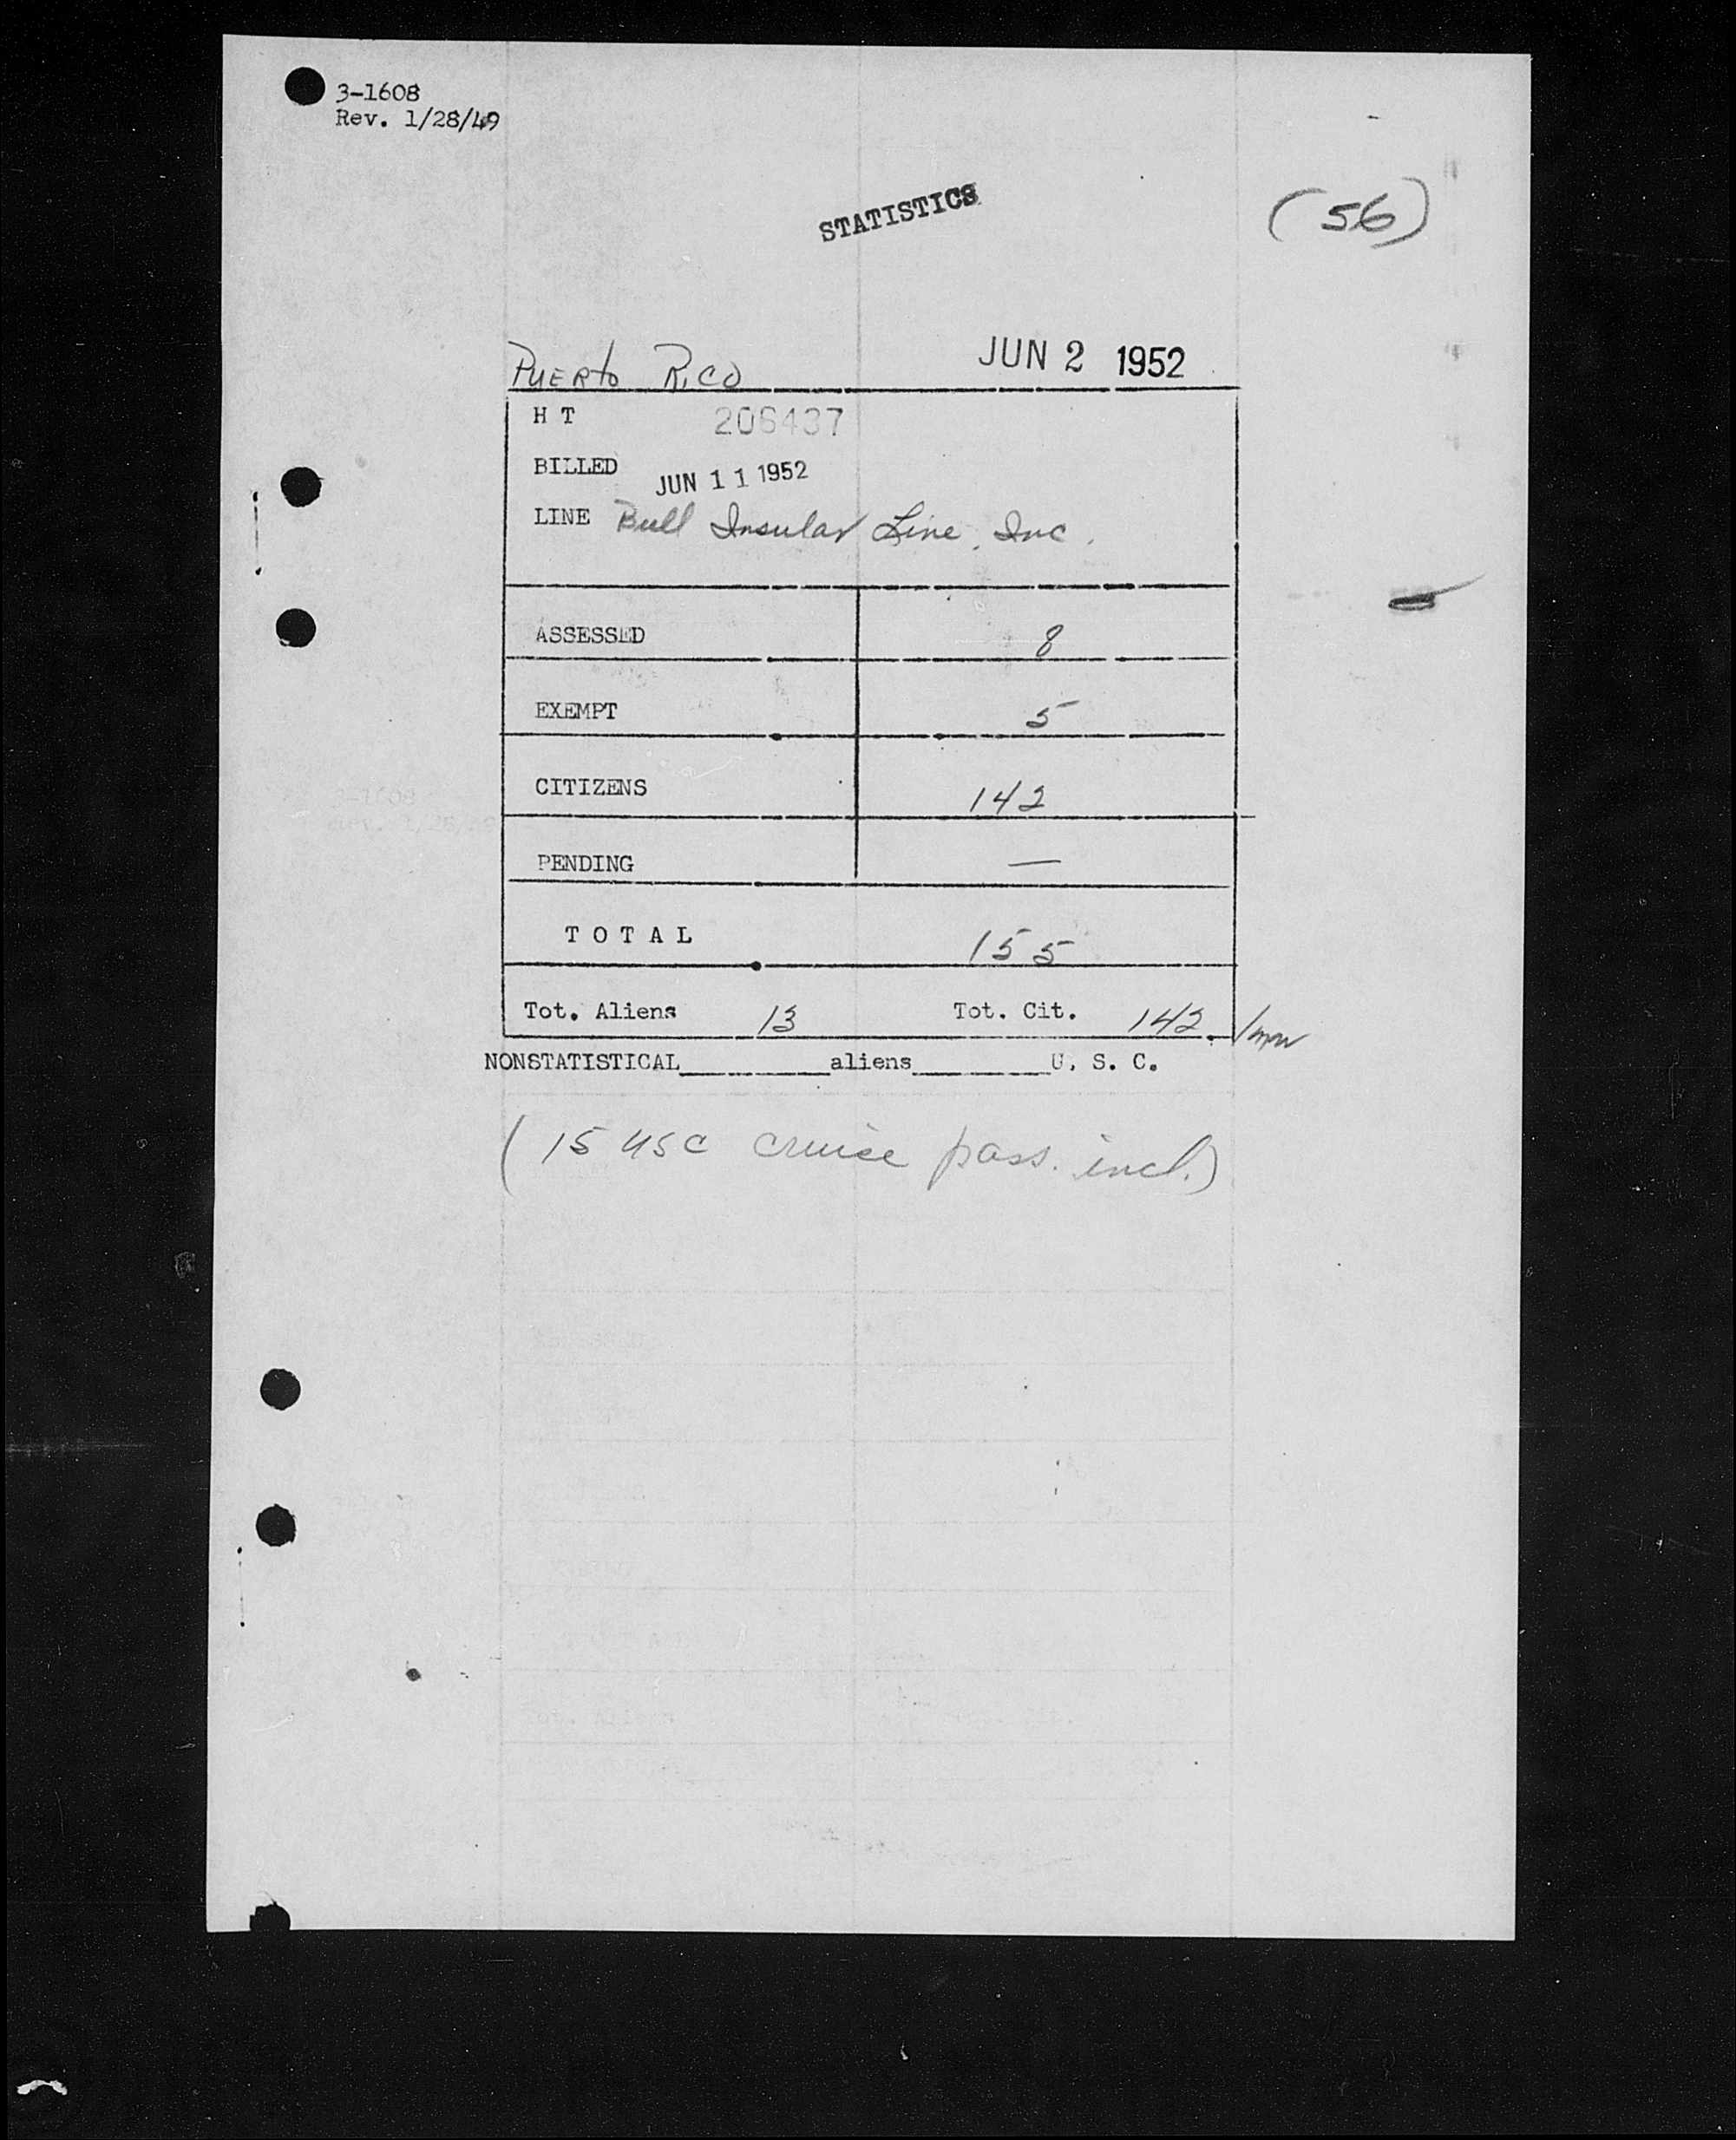 3-1608
Rev. 1/28/49
STATISTICS
(56)
Puerto Rico JUN 2 1952
H T 206437
BILLED JUN 11 1952
LINE Bull Insular Line, Inc.
ASSESSED 8
EXEMPT 5
CITIZENS 142
PENDING —
TOTAL 155
Tot. Aliens 13 Tot. Cit. 142
NONSTATISTICAL__________aliens__________U. S. C.
(15 USC cruise pass. incl.)